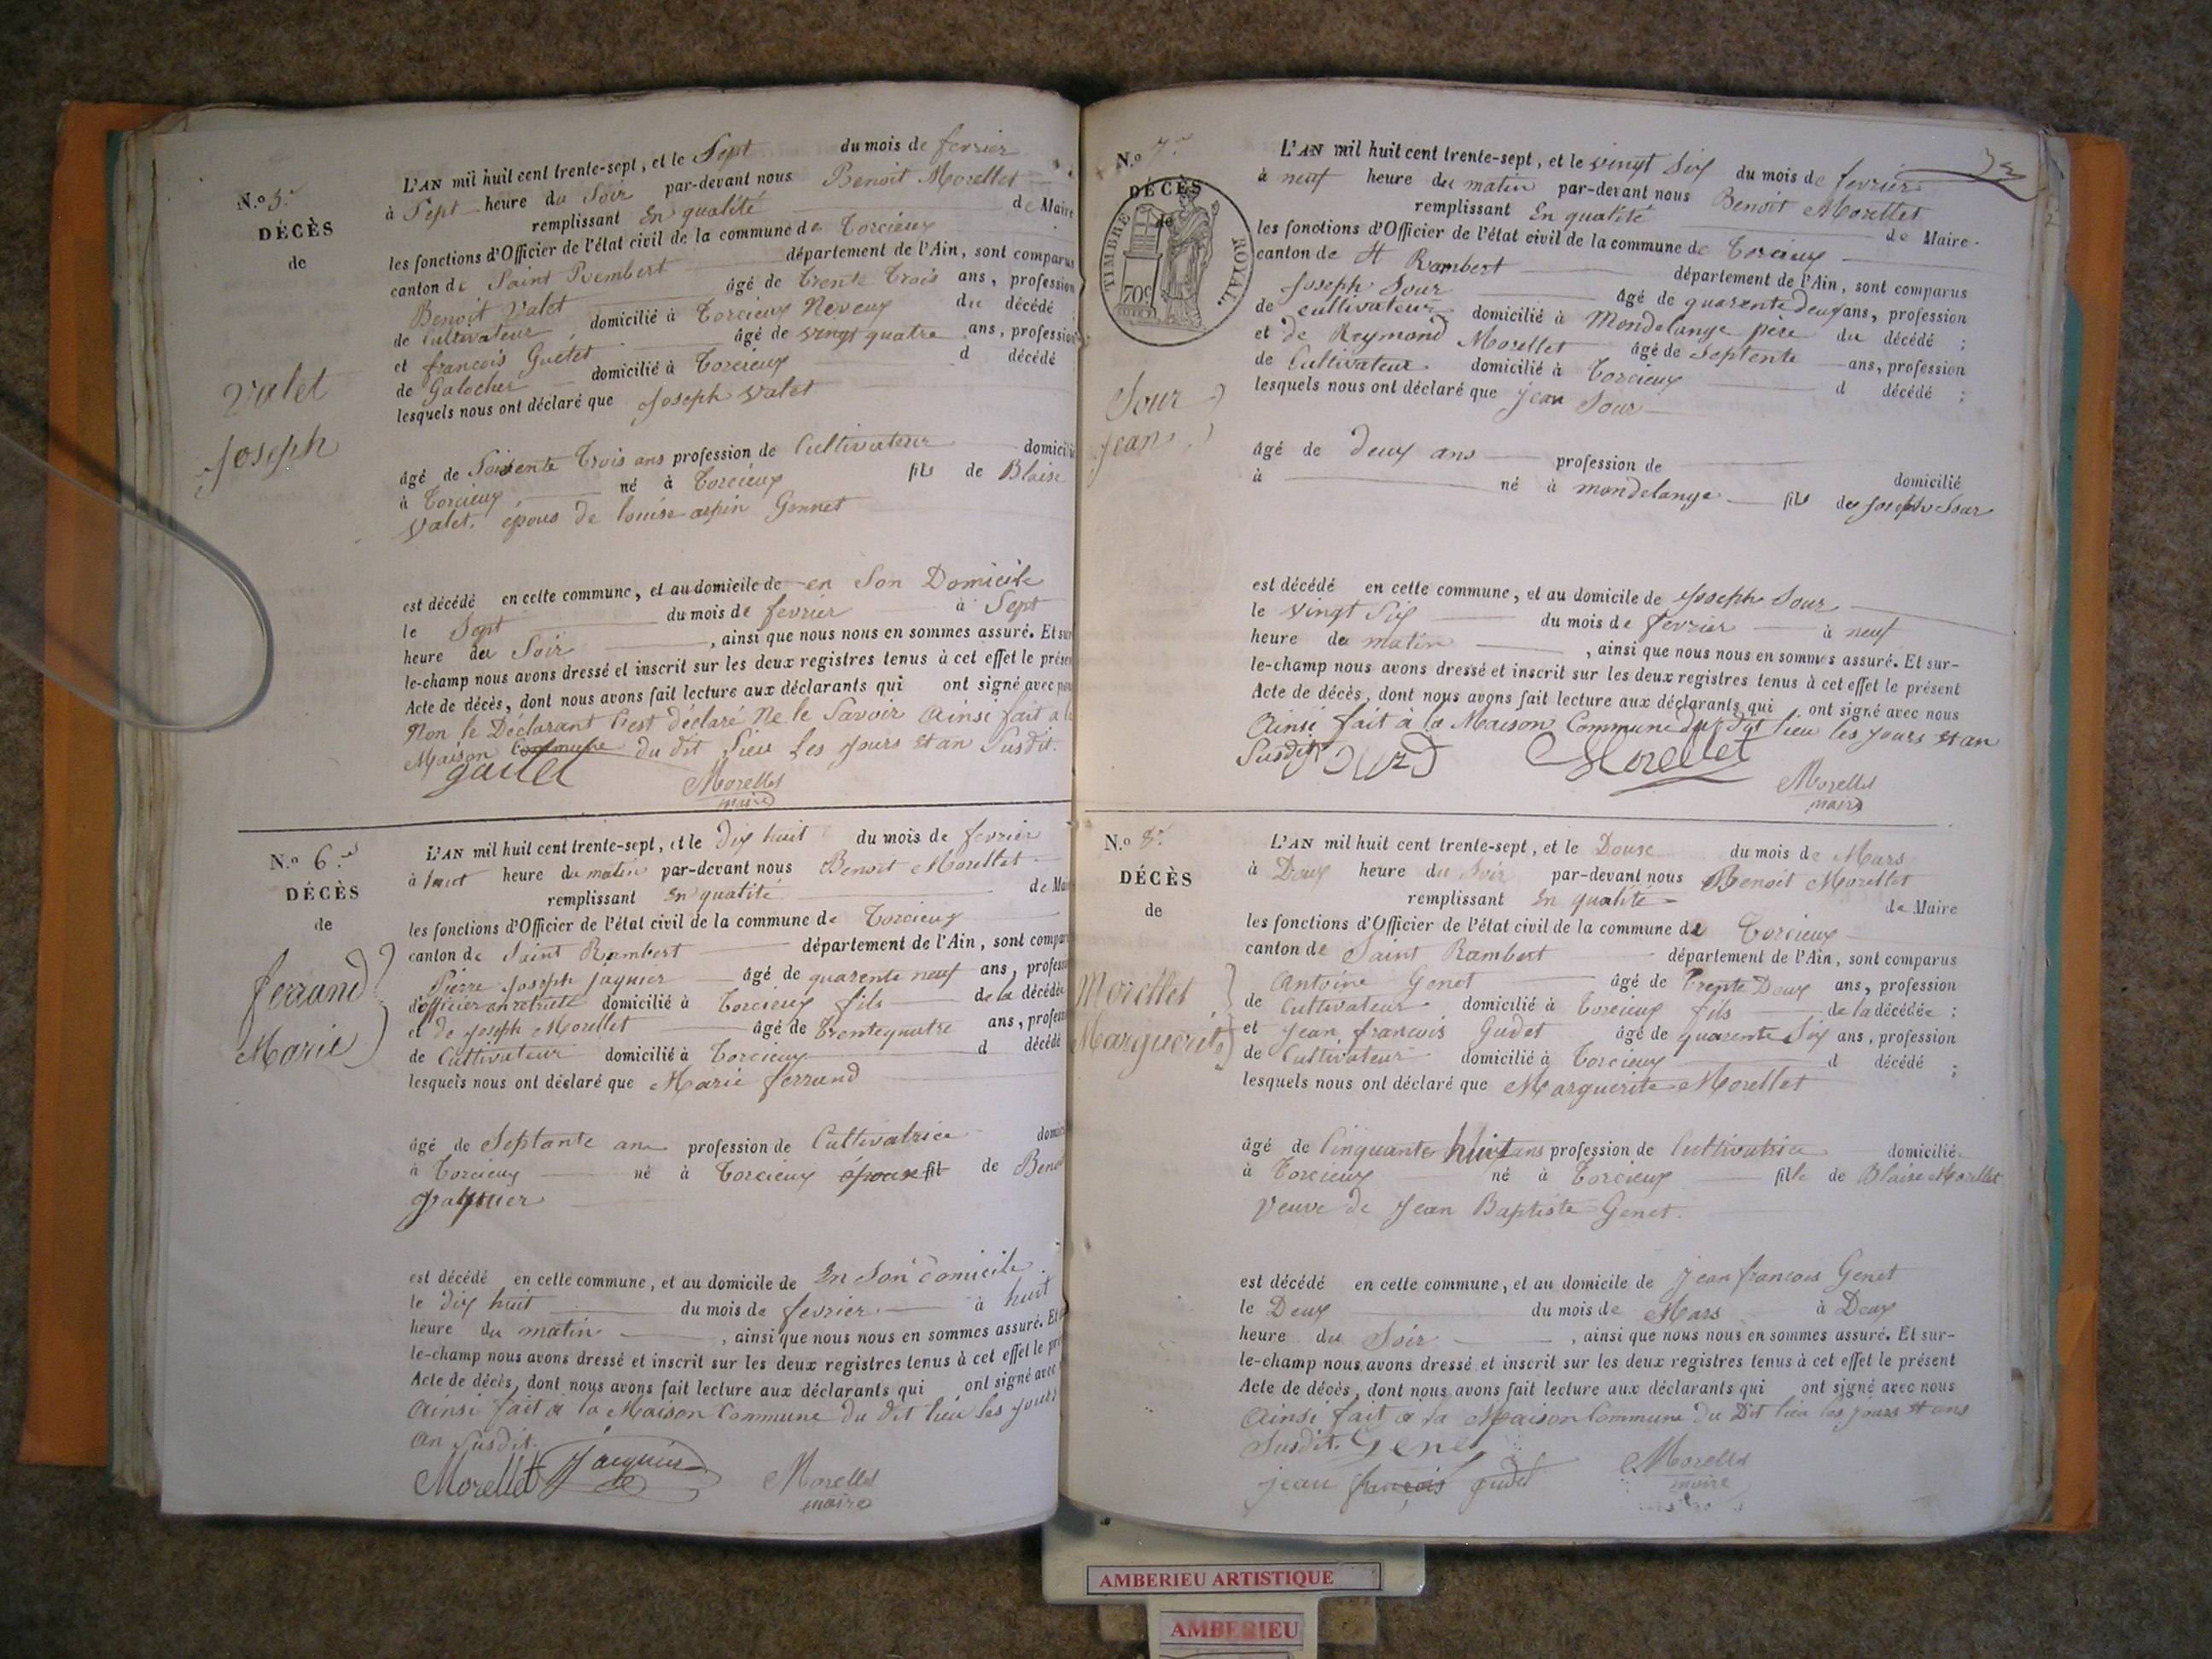 N.o 5.
DÉCÈS
de
Valet
Joseph
L'AN mil huit cent trente-sept, et le Sept du mois de fevrier
à Sept heure du Soir par-devant nous Benoit Morellet
remplissant En qualité de Maire
les fonctions d'Officier de l'état civil de la commune de Torcieux
canton de Saint Rembert département de l'Ain, sont comparus
Benoit Valet âgé de trente trois ans, profession
de Cultivateur domicilié à Torcieux Neveux du décédé
et francois Guetet âgé de vingt quatre ans, profession
de Galocher domicilié à Torcieux d décédé
lesquels nous ont déclaré que Joseph Valet
âgé de Soixente trois ans profession de Cultivateur domicilié
à Torcieux né à Torcieux fils de Blaise
Valet. épous de louise aspin Gonnet
est décédé en cette commune, et au domicile de en Son Domicile
le Sept du mois de fevrier à Sept
heure du Soir, ainsi que nous nous en sommes assuré. Et sur
le-champ nous avons dressé et inscrit sur les deux registres tenus à cet effet le présent
Acte de décès, dont nous avons fait lecture aux déclarants qui ont signé avec
Non le Déclarant S'est déclaré Ne le Savoir Ainsi fait à la
Maison Commune du dit Lieu Les Jours et an Susdit.
Morellet
maire
N.o 6
DÉCÈS
de
ferrand
Marie
L'AN mil huit cent trente-sept, et le dix huit du mois de fevrier
à huit heure du matin par-devant nous Benoit Morellet
remplissant En qualité de Maire
les fonctions d'Officier de l'état civil de la commune de Torcieux
canton de Saint Rambert département de l'Ain, sont comparus
Pierre Joseph jaquier âgé de quarente neuf ans, profession
d'officier en retraite domicilié à Torcieux fils de la décédée
et de Joseph Morellet âgé de trentequatre ans, profession
de Cultivateur domicilié à Torcieux d décédé
lesquels nous ont déclaré que Marie ferrand
âgé de Septante ans profession de Cultivatrice domicilié
à Torcieux né à Torcieux épouse fil de Benoit
jaquier
est décédé en cette commune, et au domicile de En Son domicile
le dix huit du mois de fevrier à huit
heure du matin, ainsi que nous nous en sommes assuré. Et
le-champ nous avons dressé et inscrit sur les deux registres tenus à cet effet le présent
Acte de décès, dont nous avons fait lecture aux déclarants qui ont signé avec
Ainsi fait à la Maison Commune du dit lieu les jours
an Susdit.
Morellet Jaquier Morellet
maire
N.o 7
DÉCÈS
de
TIMBRE ROYAL.
Sour
Jean
L'AN mil huit cent trente-sept, et le vingt Six du mois de fevrier
à neuf heure du matin par-devant nous Benoit Morellet
remplissant En qualité de Maire
les fonctions d'Officier de l'état civil de la commune de Torcieux
canton de St Rambert département de l'Ain, sont comparus
Joseph Sour âgé de quarente deux ans, profession
de cultivateur domicilié à Mondelange pere du décédé ;
et de Reymond Morellet âgé de Septente ans, profession
de Cultivateur domicilié à Torcieux d décédé ;
lesquels nous ont déclaré que Jean Sour
âgé de deux ans profession de domicilié
à né à mondelange fils de Joseph Sour
est décédé en cette commune, et au domicile de Joseph Sour
le vingt Six du mois de fevrier à neuf
heure du matin, ainsi que nous nous en sommes assuré. Et sur-
le-champ nous avons dressé et inscrit sur les deux registres tenus à cet effet le présent
Acte de décès, dont nous avons fait lecture aux déclarants qui ont signé avec nous
Ainsi fait à la Maison Commune du dit lieu les jours et an
Susdit Morellet
Morellet
maire
N.o 8
DÉCÈS
de
Morellet
Marguerite
L'AN mil huit cent trente-sept, et le Douse du mois de Mars
à Deux heure du Soir par-devant nous Benoit Morellet
remplissant En qualité de Maire
les fonctions d'Officier de l'état civil de la commune de Torcieux
canton de Saint Rambert département de l'Ain, sont comparus
Antoine Genet âgé de trente Deux ans, profession
de Cultivateur domicilié à Torcieux fils de la décédée ;
et Jean francois Gudet âgé de quarente Six ans, profession
de Cultivateur domicilié à Torcieux d décédé ;
lesquels nous ont déclaré que Marguerite Morellet
âgé de Cinquante huit ans profession de Cultivatrice domicilié
à Torcieux né à Torcieux fille de Blaise Morellet
Veuve de Jean Baptiste Genet.
est décédé en cette commune, et au domicile de Jean francois Genet
le Deux du mois de Mars à Deux
heure du Soir, ainsi que nous nous en sommes assuré. Et sur-
le-champ nous avons dressé et inscrit sur les deux registres tenus à cet effet le présent
Acte de décès, dont nous avons fait lecture aux déclarants qui ont signé avec nous
Ainsi fait à la Maison Commune du Dit lieu les jours et ans
Susdit. Genet
jean françois gudet Morellet
maire
AMBERIEU ARTISTIQUE
AMBERIEU